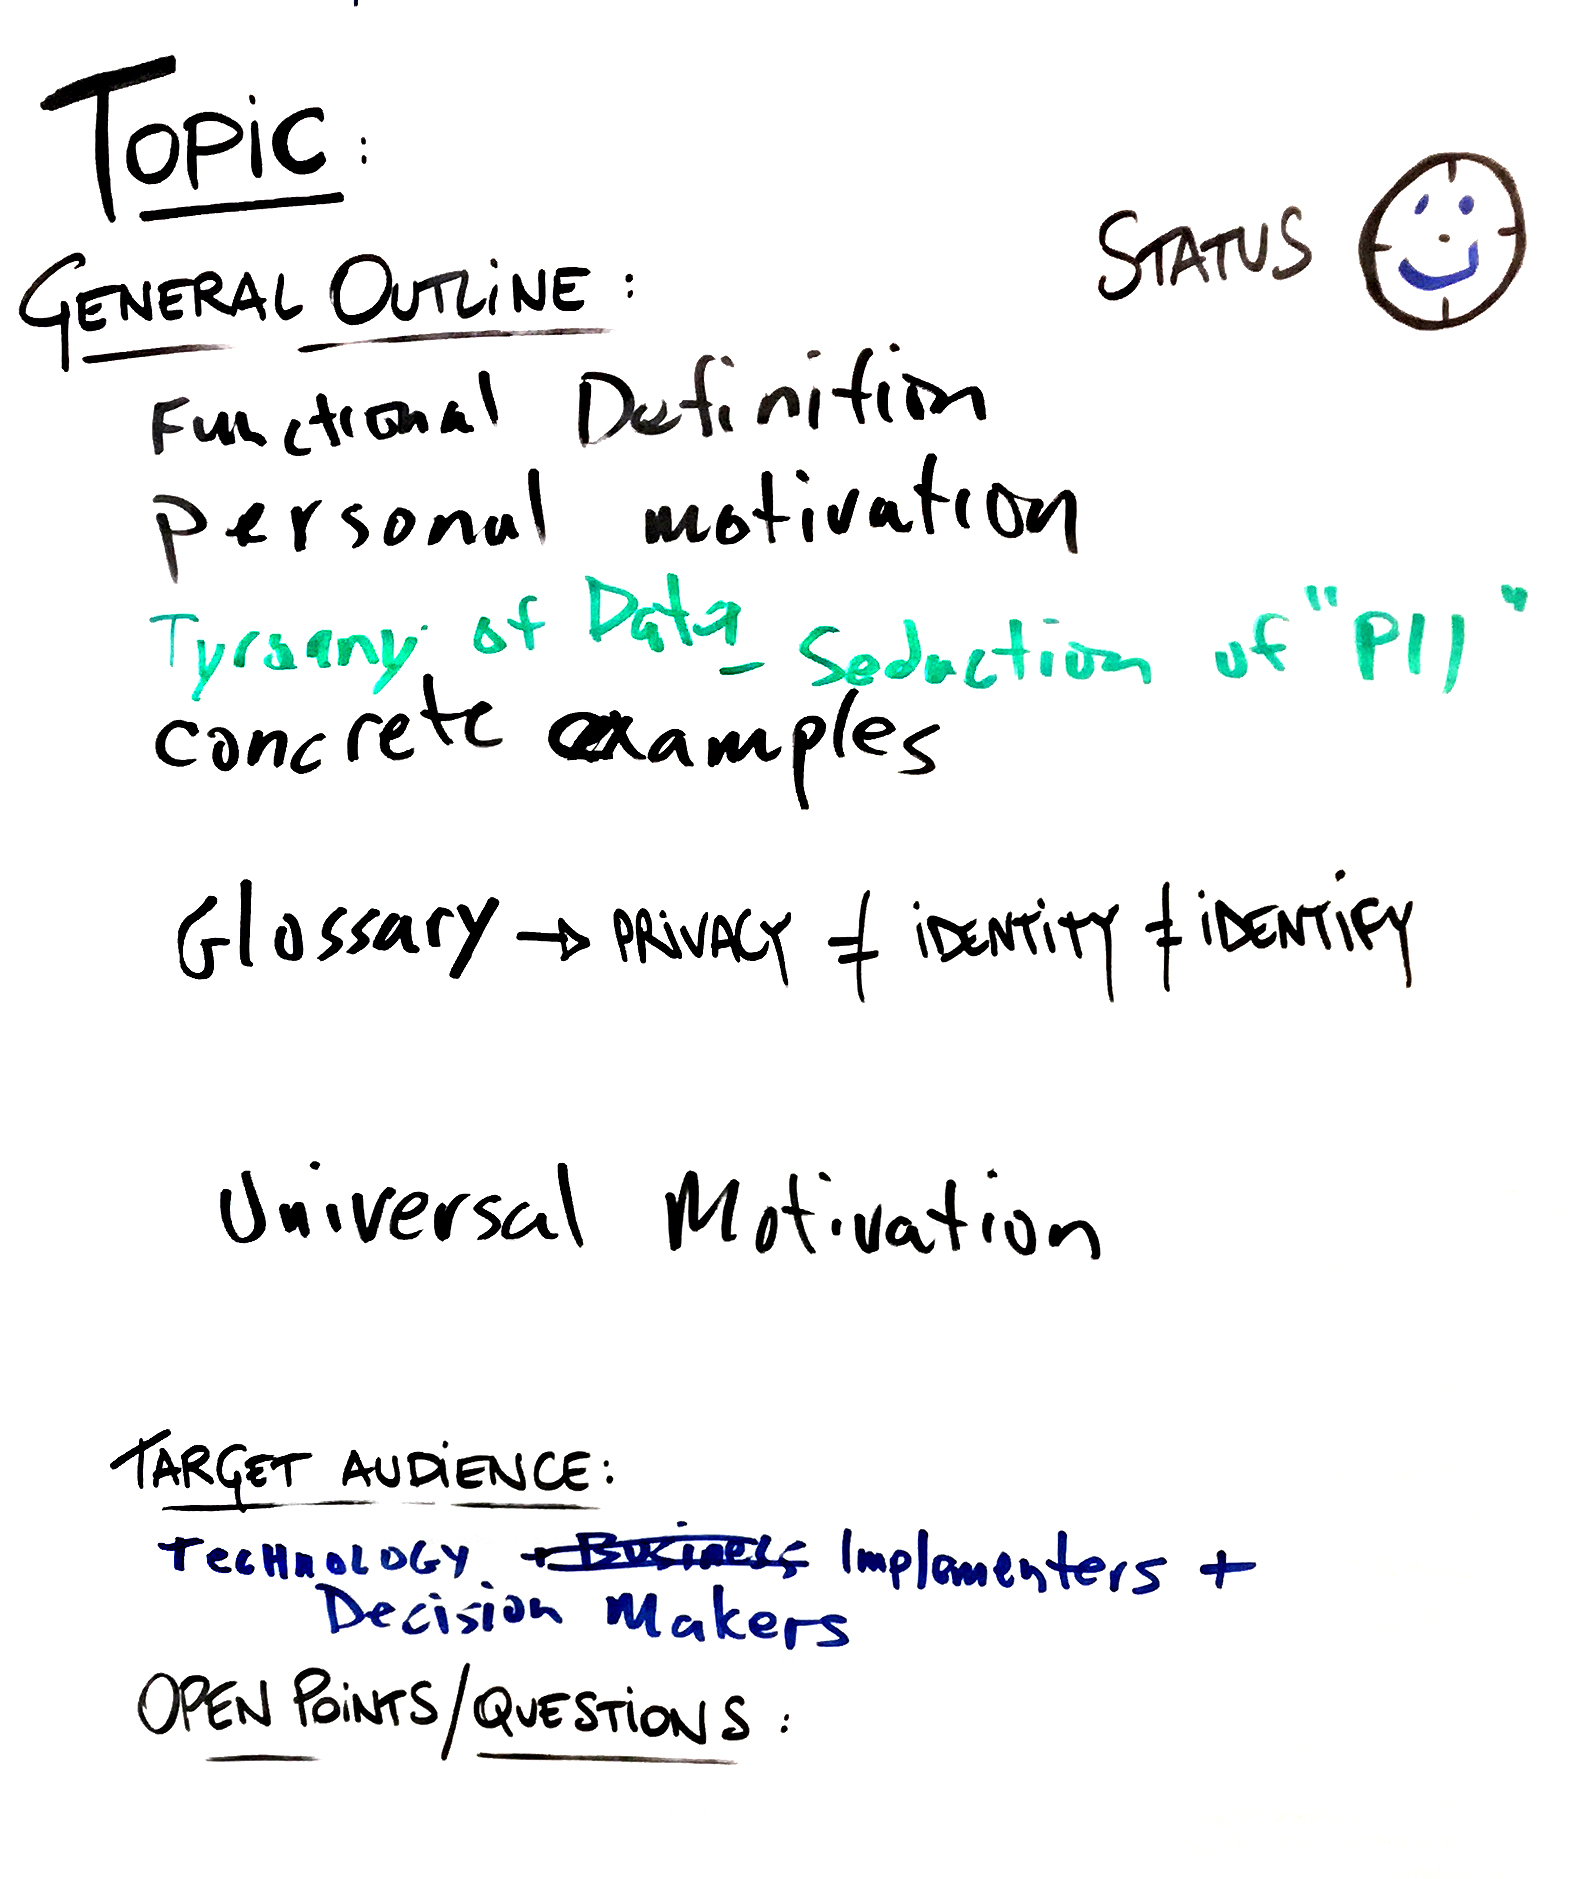 TOPIC:
STATUS
GENERAL OUTLINE:
Functional Definition
personal motivation
Tyranny of Data - Seduction of "PII"
concrete examples
Glossary → PRIVACY ≠ IDENTITY ≠ IDENTIFY
Universal Motivation
TARGET AUDIENCE:
TECHNOLOGY + Business Implementers +
Decision Makers
OPEN POINTS/QUESTIONS: